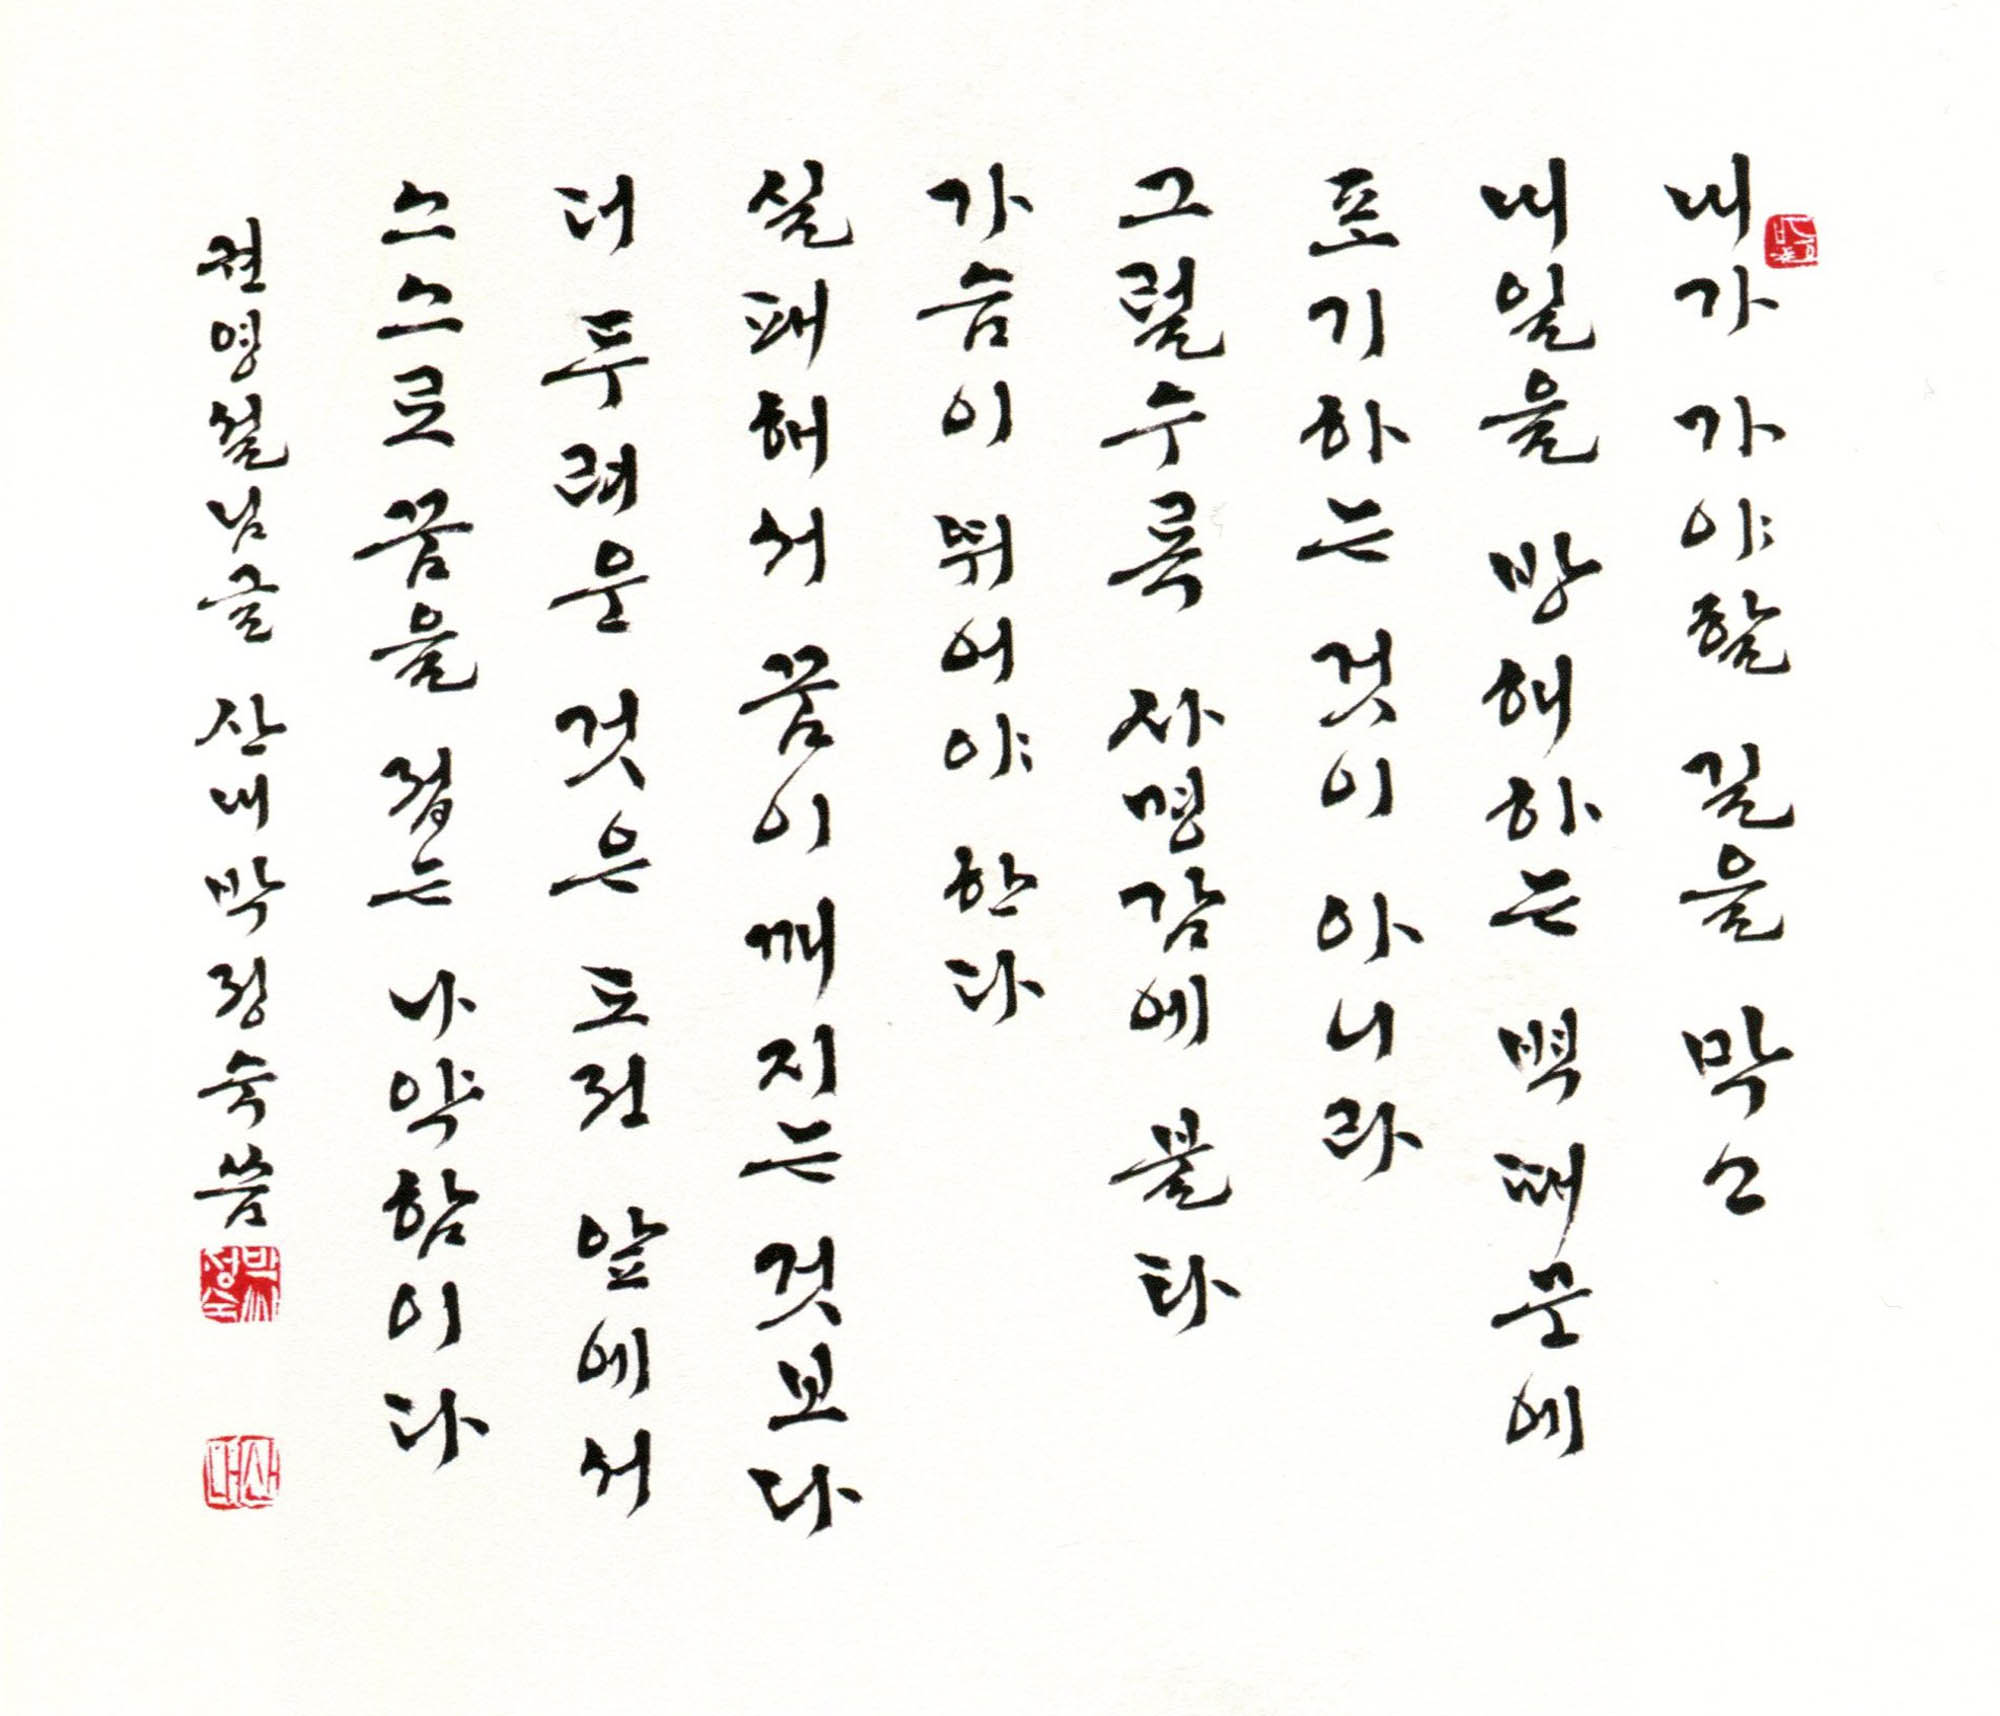 내가 가야할 길을 막고
내일을 방해하는 벽때문에
포기하는 것이 아니라
그럴수록 사명감에 불타
가슴이 뛰어야 한다
실패해서 꿈이 깨지는 것보다
더 두려운 것은 도전 앞에서
스스로 꿈을 접는 나약함이다
권영설님글 산내 박정숙 씀
산내